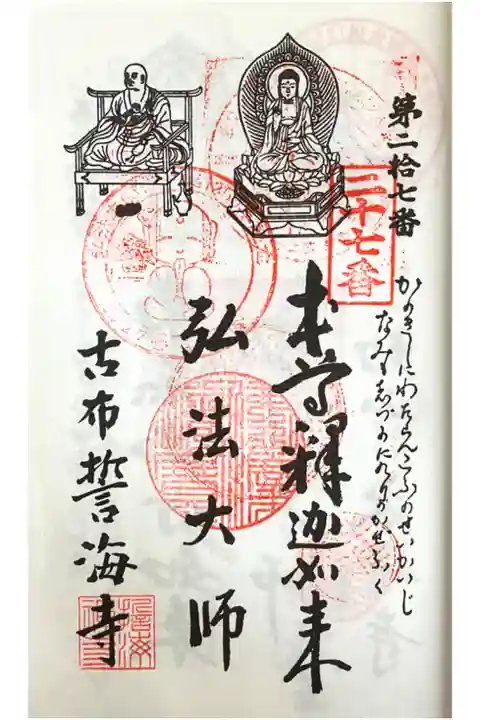 第二拾七番
二十七番
かのきしにわたらんこふのせいかいじ
なみもしづかにのりのかぜふく
本尊釋迦如来
弘法大師
古布誓海寺